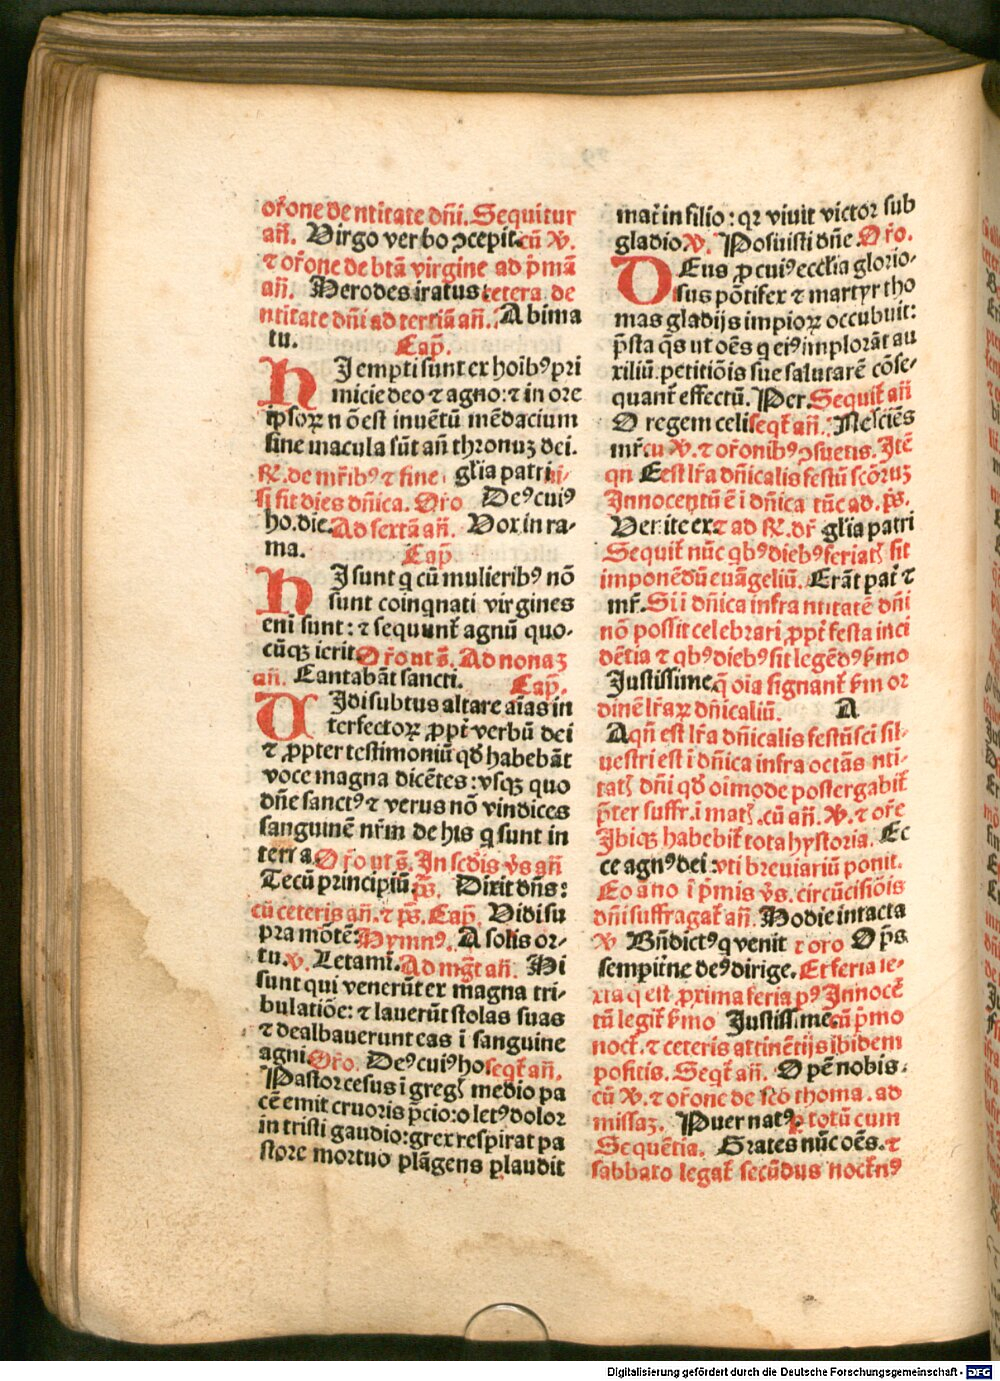 or̄one de ntitate dn̄i. Sequitur
an̄. Virgo verbo ↄcepit. cū ℣.
⁊ or̄one de btā virgine ad p̄mā
an̄. Herodes iratus cetera de
ntitate dn̄i ad tertiā an̄. A bima
tu. Cap̄.
HIempti sunt ex hoībꝰ pri
micie deo ⁊ agno: ⁊ in ore
ipsoꝝ nō est inuētū mēdacium
sine macula sūt an̄ thronuꝫ dei.
℟. de mr̄ibꝰ ⁊ fine gl̄ia patri ni-
si sit dies dn̄ica. Or̄o Deꝰ cuiꝰ
ho.die. Ad sextā an̄. Vox in ra-
ma. Cap̄.
HIsunt q cū mulieribꝰ nō
sunt coinqnati virgines
eni sunt: ⁊ sequunt̄ agnū quo-
cūqꝫ ierit Or̄o ut s̄. Ad nonaꝫ
an̄. Cantabāt sancti. Cap̄.
VIdi subtus altare aīas in
terfectoꝝ ꝓpt̄ verbū dei
⁊ ꝓpter testimoniū qđ habebāt
voce magna dicētes: vsqꝫ quo
dn̄e sanctꝰ ⁊ verus nō vindices
sanguinē nr̄m de his q sunt in
terra. Or̄o ut s̄. In scd̄is vs̄ an̄
Tecū principiū. ps̄. Dixit dn̄s:
cū ceteris an̄. ⁊ ps̄. Cap̄. Vidi su
pra mōtē: Hymnꝰ. A solis or-
tu. ℣. Letami. Ad mgt̄ an̄. Hi
sunt qui venerūt ex magna tri-
bulatiōe: ⁊ lauerūt stolas suas
⁊ dealbauerunt eas ī sanguine
agni. Or̄o. Deꝰ cuiꝰ ho seqt̄ an̄.
Pastor cesus ī greg medio pa
cē emit cruoris p̄cio: o letꝰ dolor
in tristi gaudio: grex respirat pa
store mortuo plāgens plaudit
mat̄ in filio: qꝛ viuit victor sub
gladio ℣. Posuisti dn̄e Or̄o.
DEus ꝓ cuiꝰ eccl̄ia glorio-
sus pōtifex ⁊ martyr tho
mas gladijs impioꝝ occubuit:
p̄sta qs̄ ut oēs q eiꝰ implorāt au
xiliū petitiōis sue salutarē cōse-
quant̄ effectū. Per. Sequit̄ an̄
O regem celi seqt̄ an̄. Nesciēs
mr̄. cū ℣. ⁊ or̄onibꝰ ↄsuetis. Itē
qn̄ C est lr̄a dn̄icalis festū scōruꝫ
Innocentū ē ī dn̄ica tūc ad. ps̄.
Venite ex. ⁊ ad ℟. dr̄ gl̄ia patri
Sequit̄ nūc qbꝰ diebꝰ feriat sit
imponēdū euāgeliū. Erāt pat̄ ⁊
mr̄. Si ī dn̄ica infra ntitatē dn̄i
nō possit celebrari ꝓpt̄ festa inci
dētia ⁊ qbꝰ diebꝰ sit legēdꝰ ẜmo
Iustissime q̄ oīa signant̄ ẜm or
dinē lr̄aꝝ dn̄icaliū. A
A qn̄ est lr̄a dn̄icalis festū sci sil-
uestri est ī dn̄ica infra octās nti-
tat dn̄i qđ oīmode postergabit̄
p̄ter suffr. ī mat. cū an̄. ℣. ⁊ or̄e
Ibiqꝫ habebit̄ tota hystoria. Ec
ce agnꝰ dei: vti breuiariū ponit.
Eo āno ī p̄mis vs̄. circūcisiōis
dn̄i suffragat̄ an̄. Hodie intacta
℣ Bn̄dictꝰ q venit ⁊ oro O ps̄
sempit̄ne deꝰ dirige. Et feria se-
xta q est ꝓxima feria pꝰ Innocē
tū legit̄ ẜmo Iustissimē. cū p̄mo
noct̄. ⁊ ceteris attinētijs ibidem
positis. Seqt̄ an̄. O pē nobis.
cū ℣. ⁊ or̄one de sc̄o thoma. ad
missaꝫ. Puer natꝰ. ꝑ totū cum
Sequētia. Grates nūc oēs. ⁊
sabbato legat̄ secūdus noct̄nꝰ
Digitalisierung gefördert durch die Deutsche Forschungsgemeinschaft - DFG